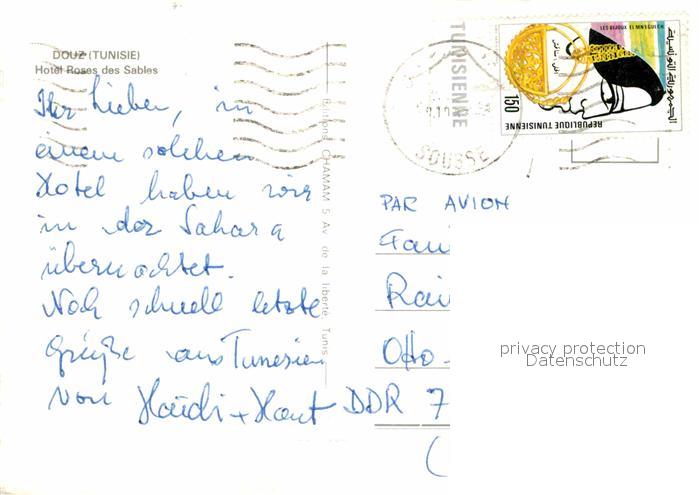 DOUZ (TUNISIE)
Hotel Roses des Sables
Ihr Lieben, in
einem solchen
Hotel haben wir
in der Sahara
übernachtet.
Noch schnell letzte
Grüße aus Tunesien
von Haidi +
Editions CHAMAM 5 Av. de la liberté. Tunis
TUNISIENNE
SOUSSE
150
REPUBLIQUE TUNISIENNE
LES BIJOUX
PAR AVION
Fam
Rai
Otto-
DDR 7
(
privacy protection
Datenschutz